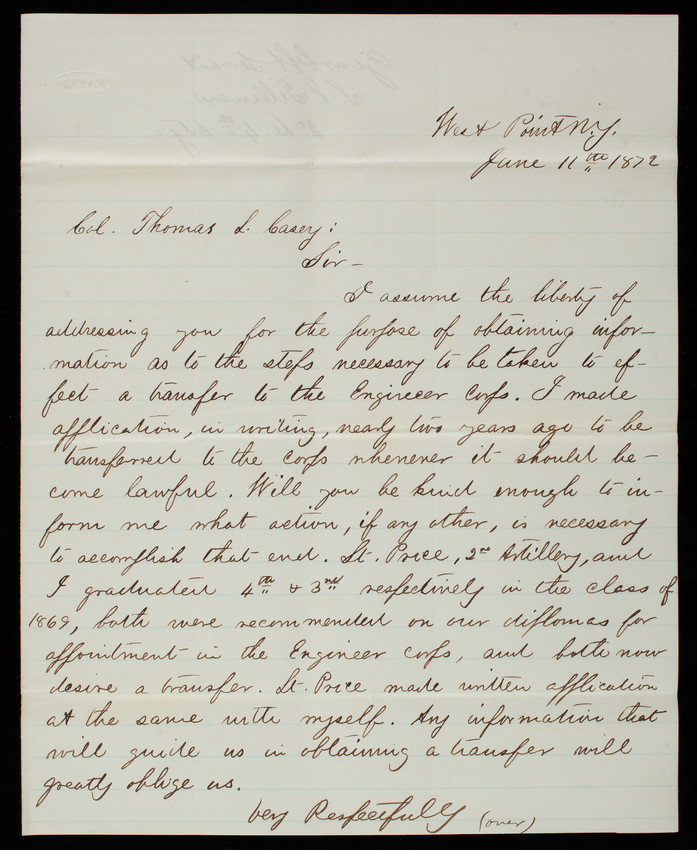 West Point N.Y.
June 11th 1872
Col. Thomas L. Casey:
Sir —
I assume the liberty of
addressing you for the purpose of obtaining infor-
mation as to the steps necessary to be taken to ef-
fect a transfer to the Engineer Corps. I made
application, in writing, nearly two years ago to be
transferred to the Corps whenever it should be-
come lawful. Will you be kind enough to in-
form me what action, if any other, is necessary
to accomplish that end. Lt. Price, 2nd Artillery, and
I graduated 4th & 3rd respectively in the class of
1869, both were recommended on our diplomas for
appointment in the Engineer Corps, and both now
desire a transfer. Lt. Price made written application
at the same with myself. Any information that
will guide us in obtaining a transfer will
greatly oblige us.
Very Respectfully (over)